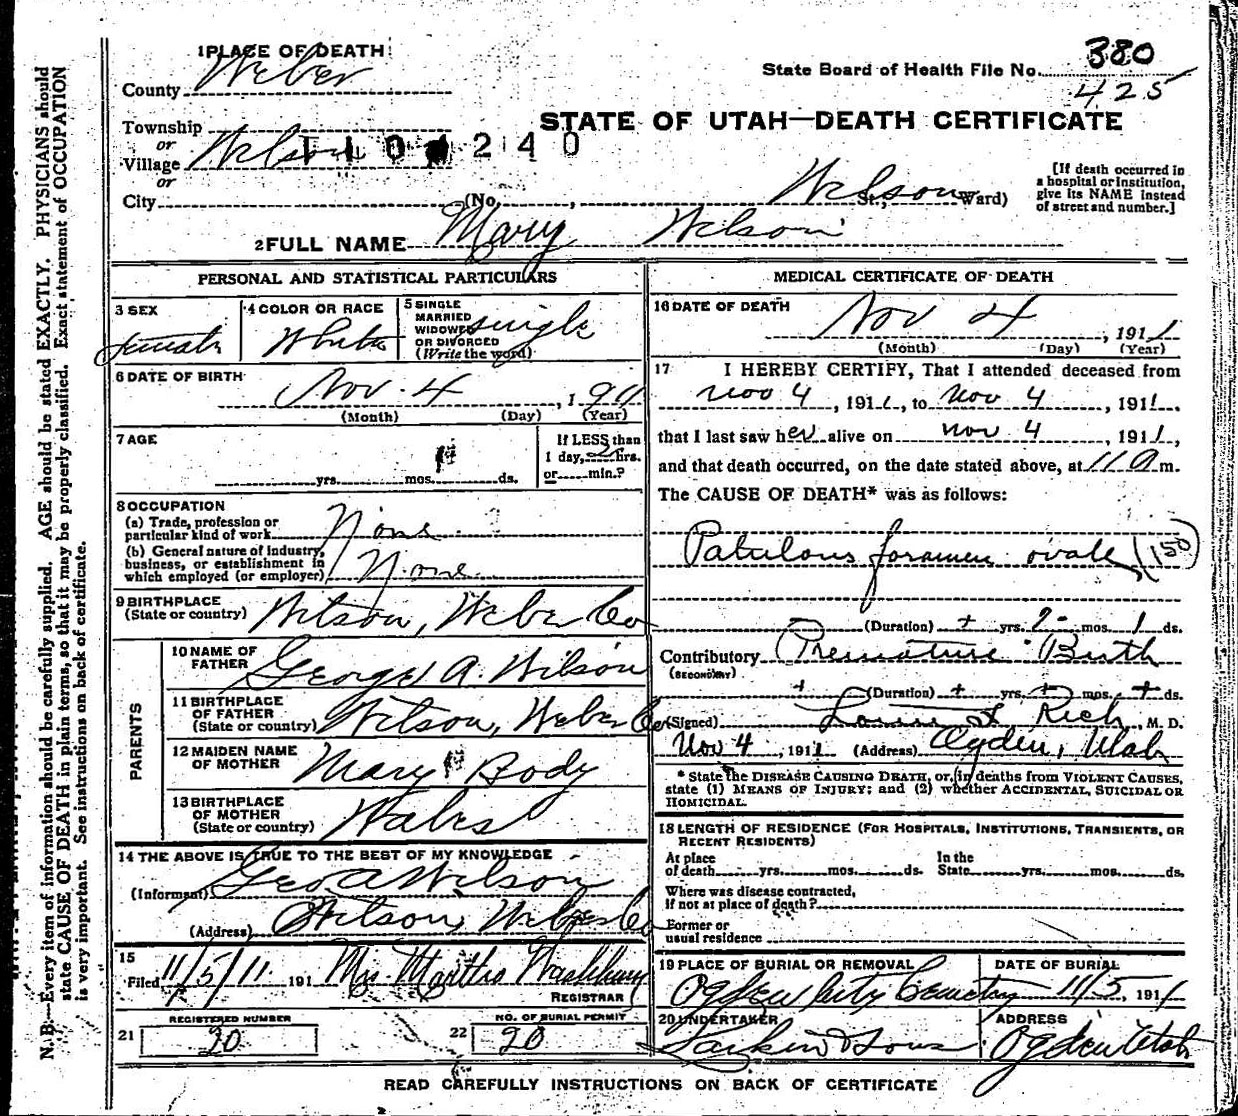 1 PLACE OF DEATH
County Weber
State Board of Health File No. 380
425
STATE OF UTAH—DEATH CERTIFICATE
Township
or
Village Wilson
1104240
or
City (No. , Wilson St.; Ward)
[If death occurred in a hospital or institution, give its NAME instead of street and number.]
2 FULL NAME Mary Wilson
PERSONAL AND STATISTICAL PARTICULARS
3 SEX
female
4 COLOR OR RACE
White
5 SINGLE
MARRIED
WIDOWED
OR DIVORCED
(Write the word)
single
6 DATE OF BIRTH
Nov 4 , 1911
(Month) (Day) (Year)
7 AGE
yrs. mos. ds.
If LESS than
1 day, 2 hrs.
or min.?
8 OCCUPATION
(a) Trade, profession or
particular kind of work None
(b) General nature of industry,
business, or establishment in
which employed (or employer) None
9 BIRTHPLACE
(State or country) Wilson, Weber Co
PARENTS
10 NAME OF
FATHER George A. Wilson
11 BIRTHPLACE
OF FATHER
(State or country) Wilson, Weber Co
12 MAIDEN NAME
OF MOTHER Mary Body
13 BIRTHPLACE
OF MOTHER
(State or country) Wales
14 THE ABOVE IS TRUE TO THE BEST OF MY KNOWLEDGE
(Informant) Geo A Wilson
(Address) Wilson, Weber Co
15
Filed 11/5/11 191 Mrs. Martha Washburn
REGISTRAR
21 REGISTERED NUMBER
20
22 NO. OF BURIAL PERMIT
20
MEDICAL CERTIFICATE OF DEATH
16 DATE OF DEATH
Nov 4 , 1911
(Month) (Day) (Year)
17 I HEREBY CERTIFY, That I attended deceased from
Nov 4 , 1911, to Nov 4 , 1911,
that I last saw her alive on Nov 4 , 1911,
and that death occurred, on the date stated above, at 11 a m.
The CAUSE OF DEATH* was as follows:
Patulous foramen ovale (150)
(Duration) + yrs. mos. 1 ds.
Contributory Premature Birth
(SECONDARY)
+ (Duration) + yrs. + mos. + ds.
(Signed) Rich, M. D.
Nov 4 , 1911 (Address) Ogden, Utah
* State the DISEASE CAUSING DEATH, or, in deaths from VIOLENT CAUSES,
state (1) MEANS OF INJURY; and (2) whether ACCIDENTAL, SUICIDAL OR
HOMICIDAL.
18 LENGTH OF RESIDENCE (FOR HOSPITALS, INSTITUTIONS, TRANSIENTS, OR
RECENT RESIDENTS)
At place
of death yrs. mos. ds.
In the
State yrs. mos. ds.
Where was disease contracted,
if not at place of death?
Former or
usual residence
19 PLACE OF BURIAL OR REMOVAL
Ogden City Cemetery
DATE OF BURIAL
11/5 , 1911
20 UNDERTAKER
Larkin & Sons
ADDRESS
Ogden Utah
READ CAREFULLY INSTRUCTIONS ON BACK OF CERTIFICATE
N. B.—Every item of information should be carefully supplied. AGE should be stated EXACTLY. PHYSICIANS should
state CAUSE OF DEATH in plain terms, so that it may be properly classified. Exact statement of OCCUPATION
is very important. See instructions on back of certificate.